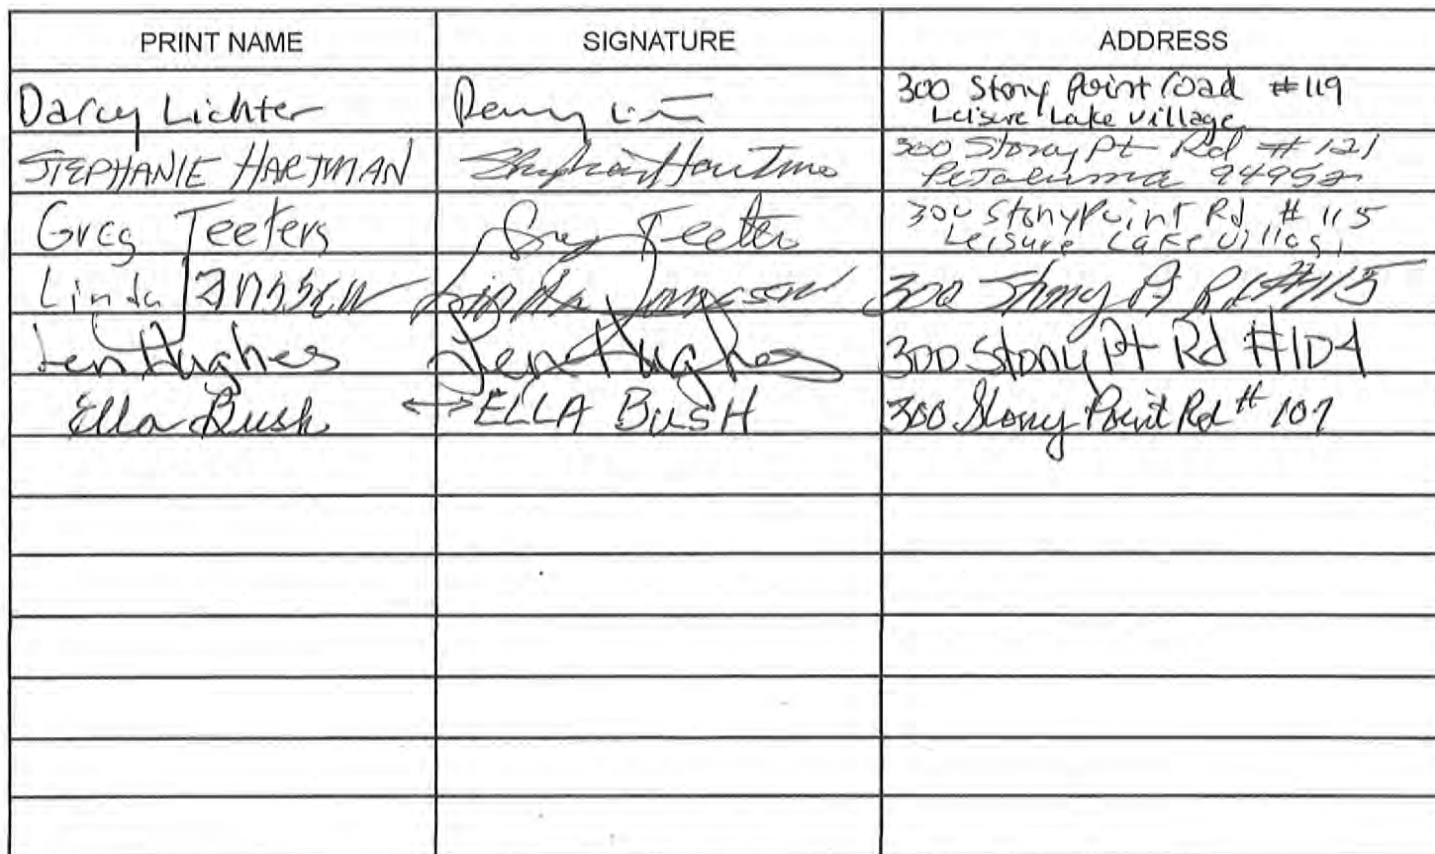 PRINT NAME SIGNATURE ADDRESS
Darcy Lichter 300 Stony Point road #119
Leisure Lake Village
STEPHANIE HARTMAN Stephanie Hartman 300 Stony Pt Rd #121
Petaluma 94952
Greg Teeters Greg Teeter 300 Stony Point Rd #115
Leisure Lake Village
Linda Janssen Linda Janssen 300 Stony Pt Rd #115
Len Hughes Len Hughes 300 Stony Pt Rd #104
Ella Bush <-> ELLA BUSH 300 Stony Point Rd # 107